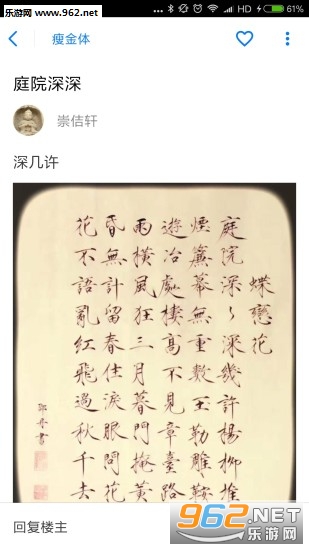 乐游网 www.962.net
61%
瘦金体
庭院深深
崇佶轩
深几许
蝶戀花
庭院深〻深幾許楊柳堆
煙簾幕無重數玉勒雕鞍
遊冶處樓高不見章臺路
雨橫風狂三月暮門掩黃
昏無計留春住淚眼問花
花不語亂紅飛過秋千去
回复楼主
962.NET
乐游网